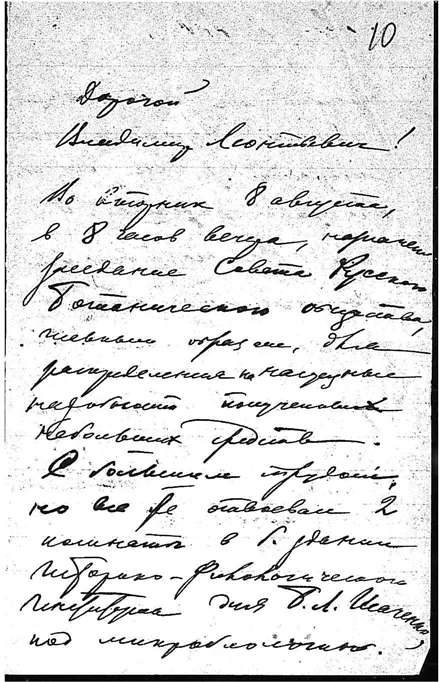 10
Дорогой
Владимир Леонтьевич!
Во вторник 8 августа,
в 8 часов вечера, назначено
заседание Совета Русского
Ботанического общества,
главным образом, для
распределения на насущные
надобности полученных
небольших средств.
С большим трудом,
но все же отвоевали 2
комнаты в б. здании
Историко-Филологического
Института для Б. Л. Исаченко,
под микробиологию.